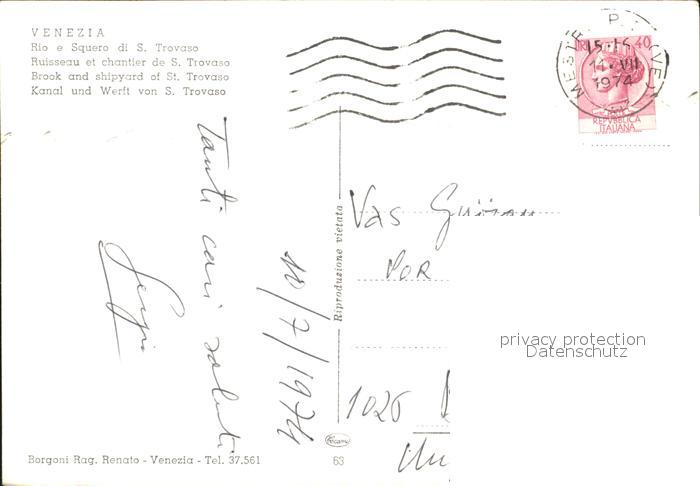 VENEZIA
Rio e Squero di S. Trovaso
Ruisseau et chantier de S. Trovaso
Brook and shipyard of St. Trovaso
Kanal und Werft von S. Trovaso
MESTRE
P.
(VE)
15-16
14·VII
1974
40
REPVBBLICA
ITALIANA
Tanti cari saluti
10/7/1974
Riproduzione vietata
Vas
1026
privacy protection
Datenschutz
Borgoni Rag. Renato - Venezia - Tel. 37.561
63